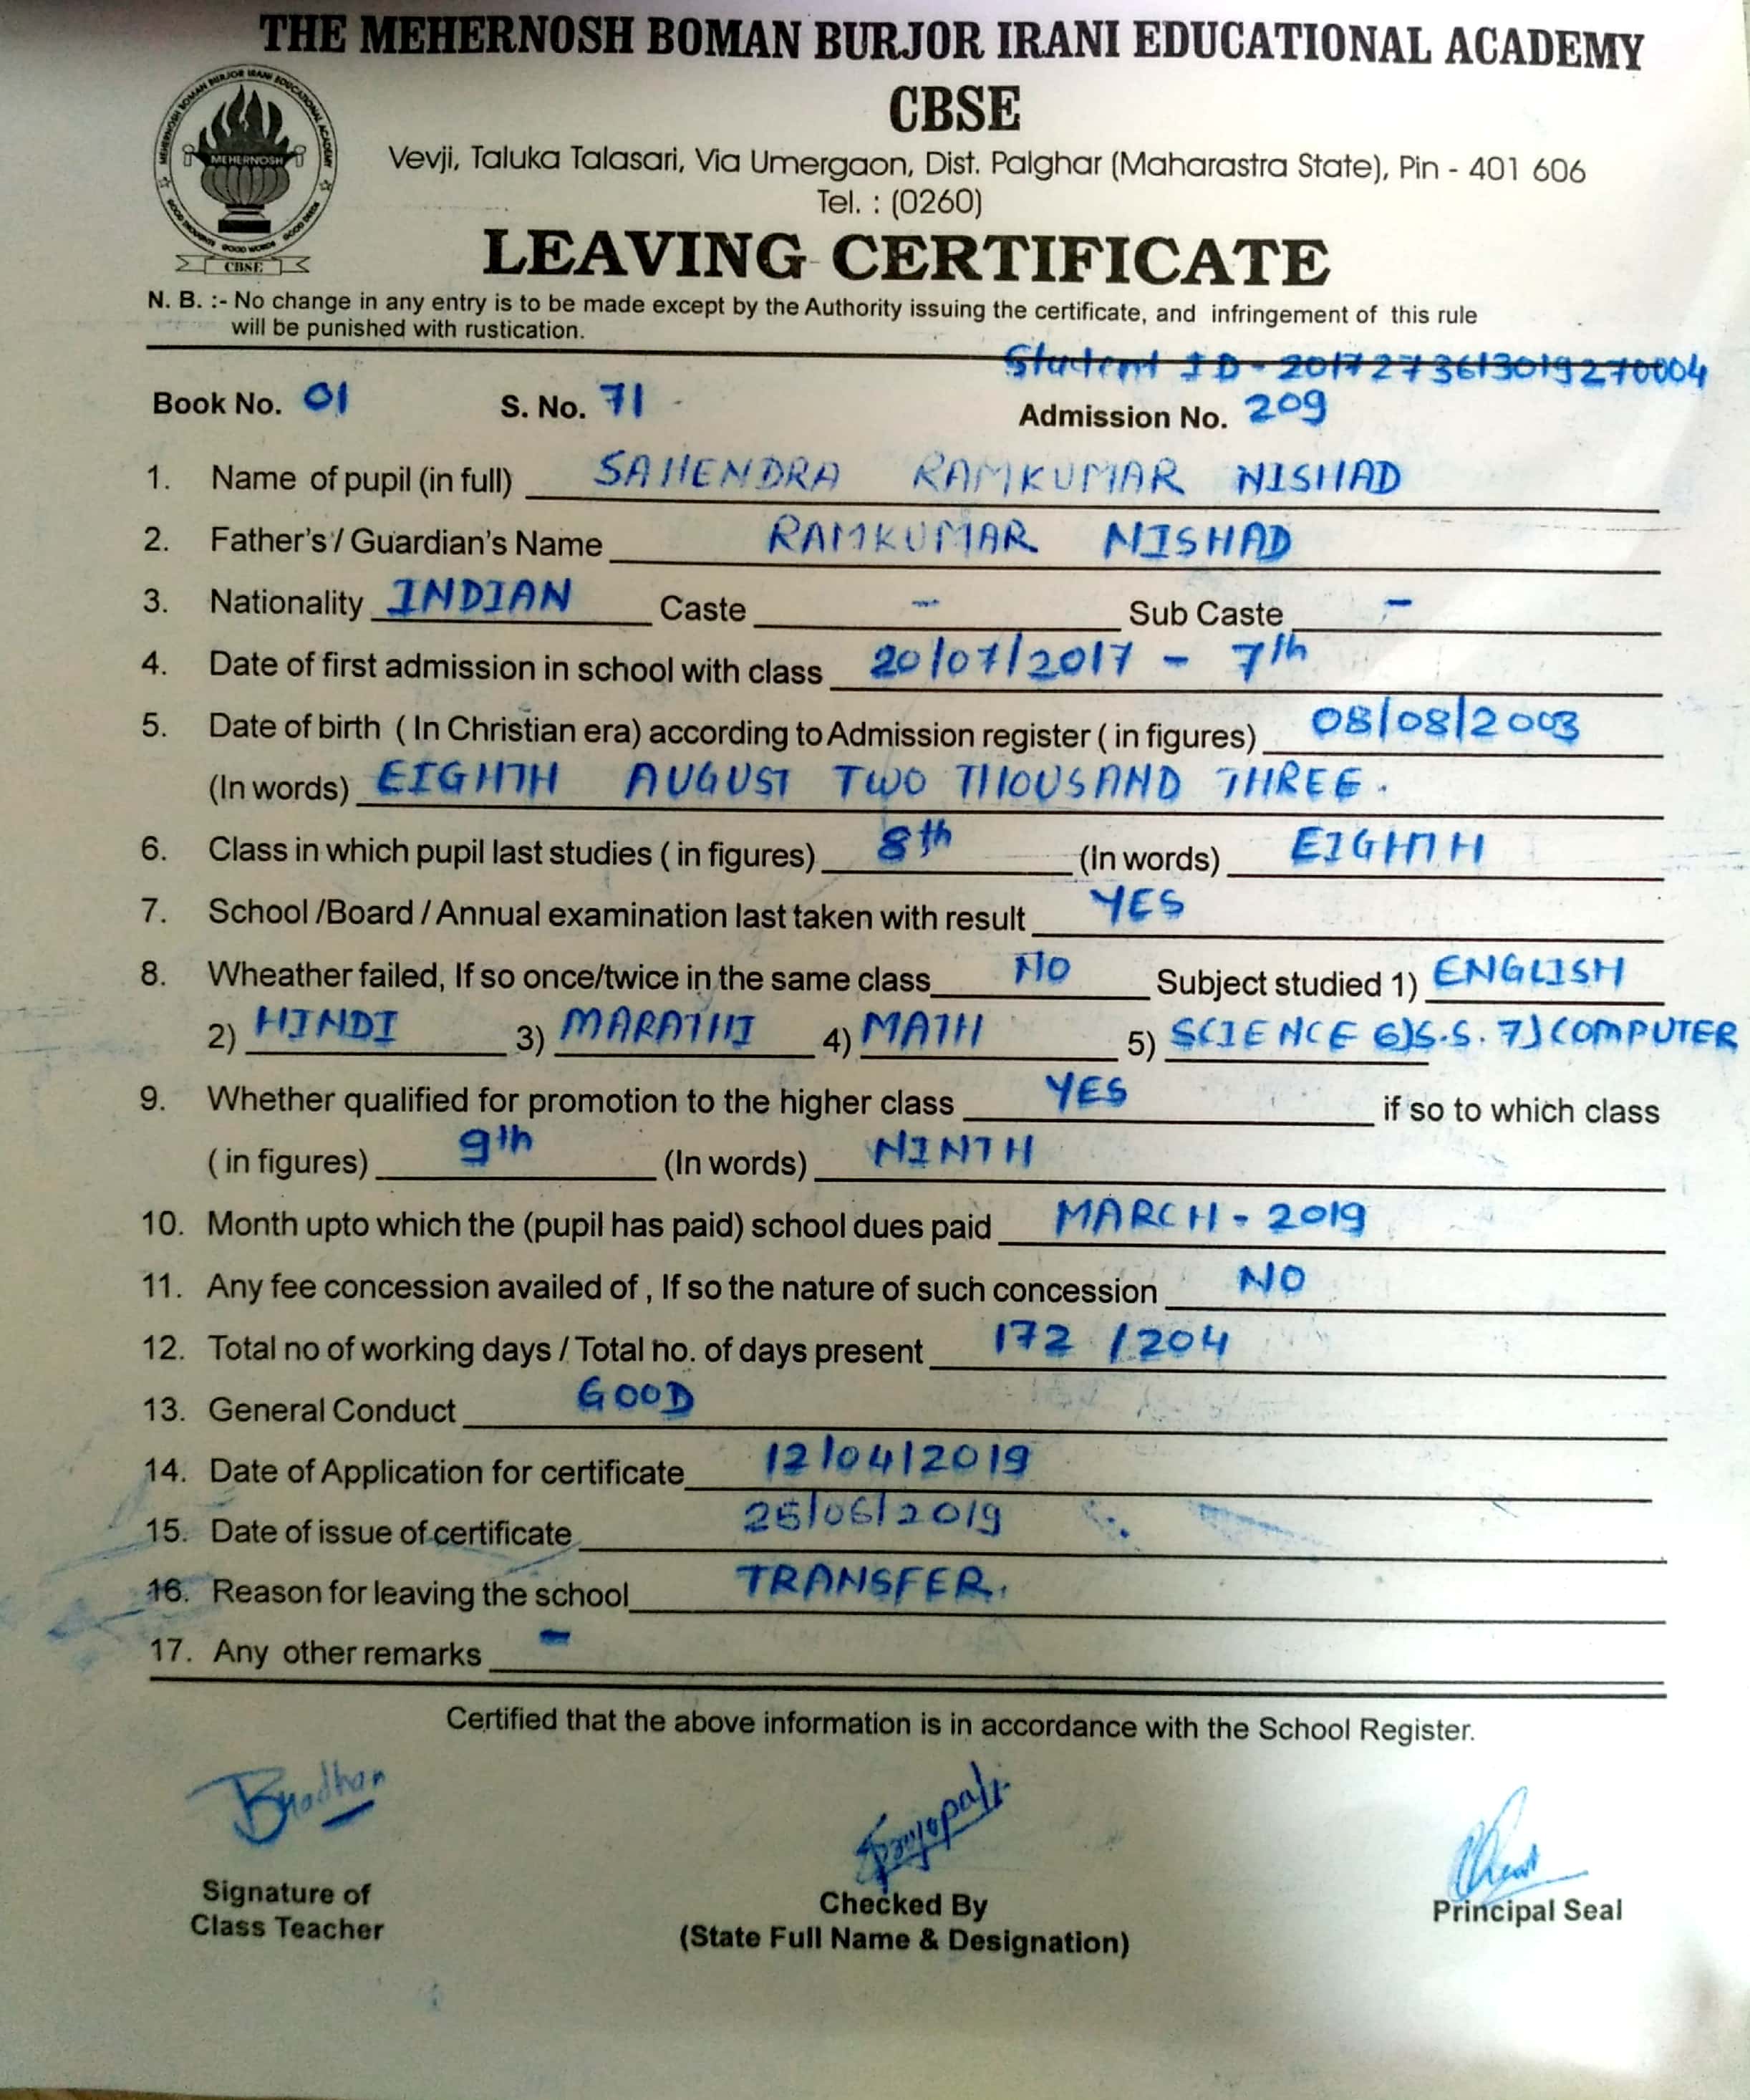 THE MEHERNOSH BOMAN BURJOR IRANI EDUCATIONAL ACADEMY
CBSE
MEHERNOSH BOMAN BURJOR IRANI EDUCATIONAL ACADEMY
MEHERNOSH
GOOD THOUGHTS GOOD WORDS GOOD DEEDS
CBSE
Vevji, Taluka Talasari, Via Umergaon, Dist. Palghar (Maharastra State), Pin - 401 606
Tel. : (0260)
LEAVING CERTIFICATE
N. B. :- No change in any entry is to be made except by the Authority issuing the certificate, and infringement of this rule
will be punished with rustication.
Student ID - 2017273613019270004
Book No. 01 S. No. 71 Admission No. 209
1. Name of pupil (in full) SAHENDRA RAMKUMAR NISHAD
2. Father's / Guardian's Name RAMKUMAR NISHAD
3. Nationality INDIAN Caste - Sub Caste -
4. Date of first admission in school with class 20/07/2017 - 7th
5. Date of birth ( In Christian era) according to Admission register ( in figures) 08/08/2003
(In words) EIGHTH AUGUST TWO THOUSAND THREE.
6. Class in which pupil last studies ( in figures) 8th (In words) EIGHTH
7. School /Board / Annual examination last taken with result YES
8. Wheather failed, If so once/twice in the same class NO Subject studied 1) ENGLISH
2) HINDI 3) MARATHI 4) MATH 5) SCIENCE 6)S.S. 7)COMPUTER
9. Whether qualified for promotion to the higher class YES if so to which class
( in figures) 9th (In words) NINTH
10. Month upto which the (pupil has paid) school dues paid MARCH - 2019
11. Any fee concession availed of , If so the nature of such concession NO
12. Total no of working days / Total no. of days present 172 /204
13. General Conduct GOOD
14. Date of Application for certificate 12/04/2019
15. Date of issue of certificate 25/06/2019
16. Reason for leaving the school TRANSFER.
17. Any other remarks -
Certified that the above information is in accordance with the School Register.
Signature of
Class Teacher
Checked By
(State Full Name & Designation)
Principal Seal